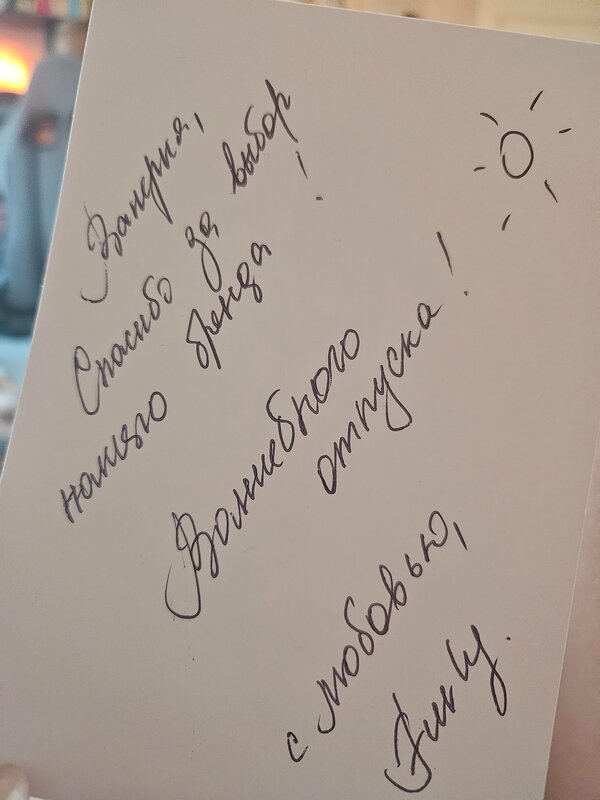 Валерия,
Спасибо за выбор
нашего бренда !
Волшебного
отпуска!
с любовью,